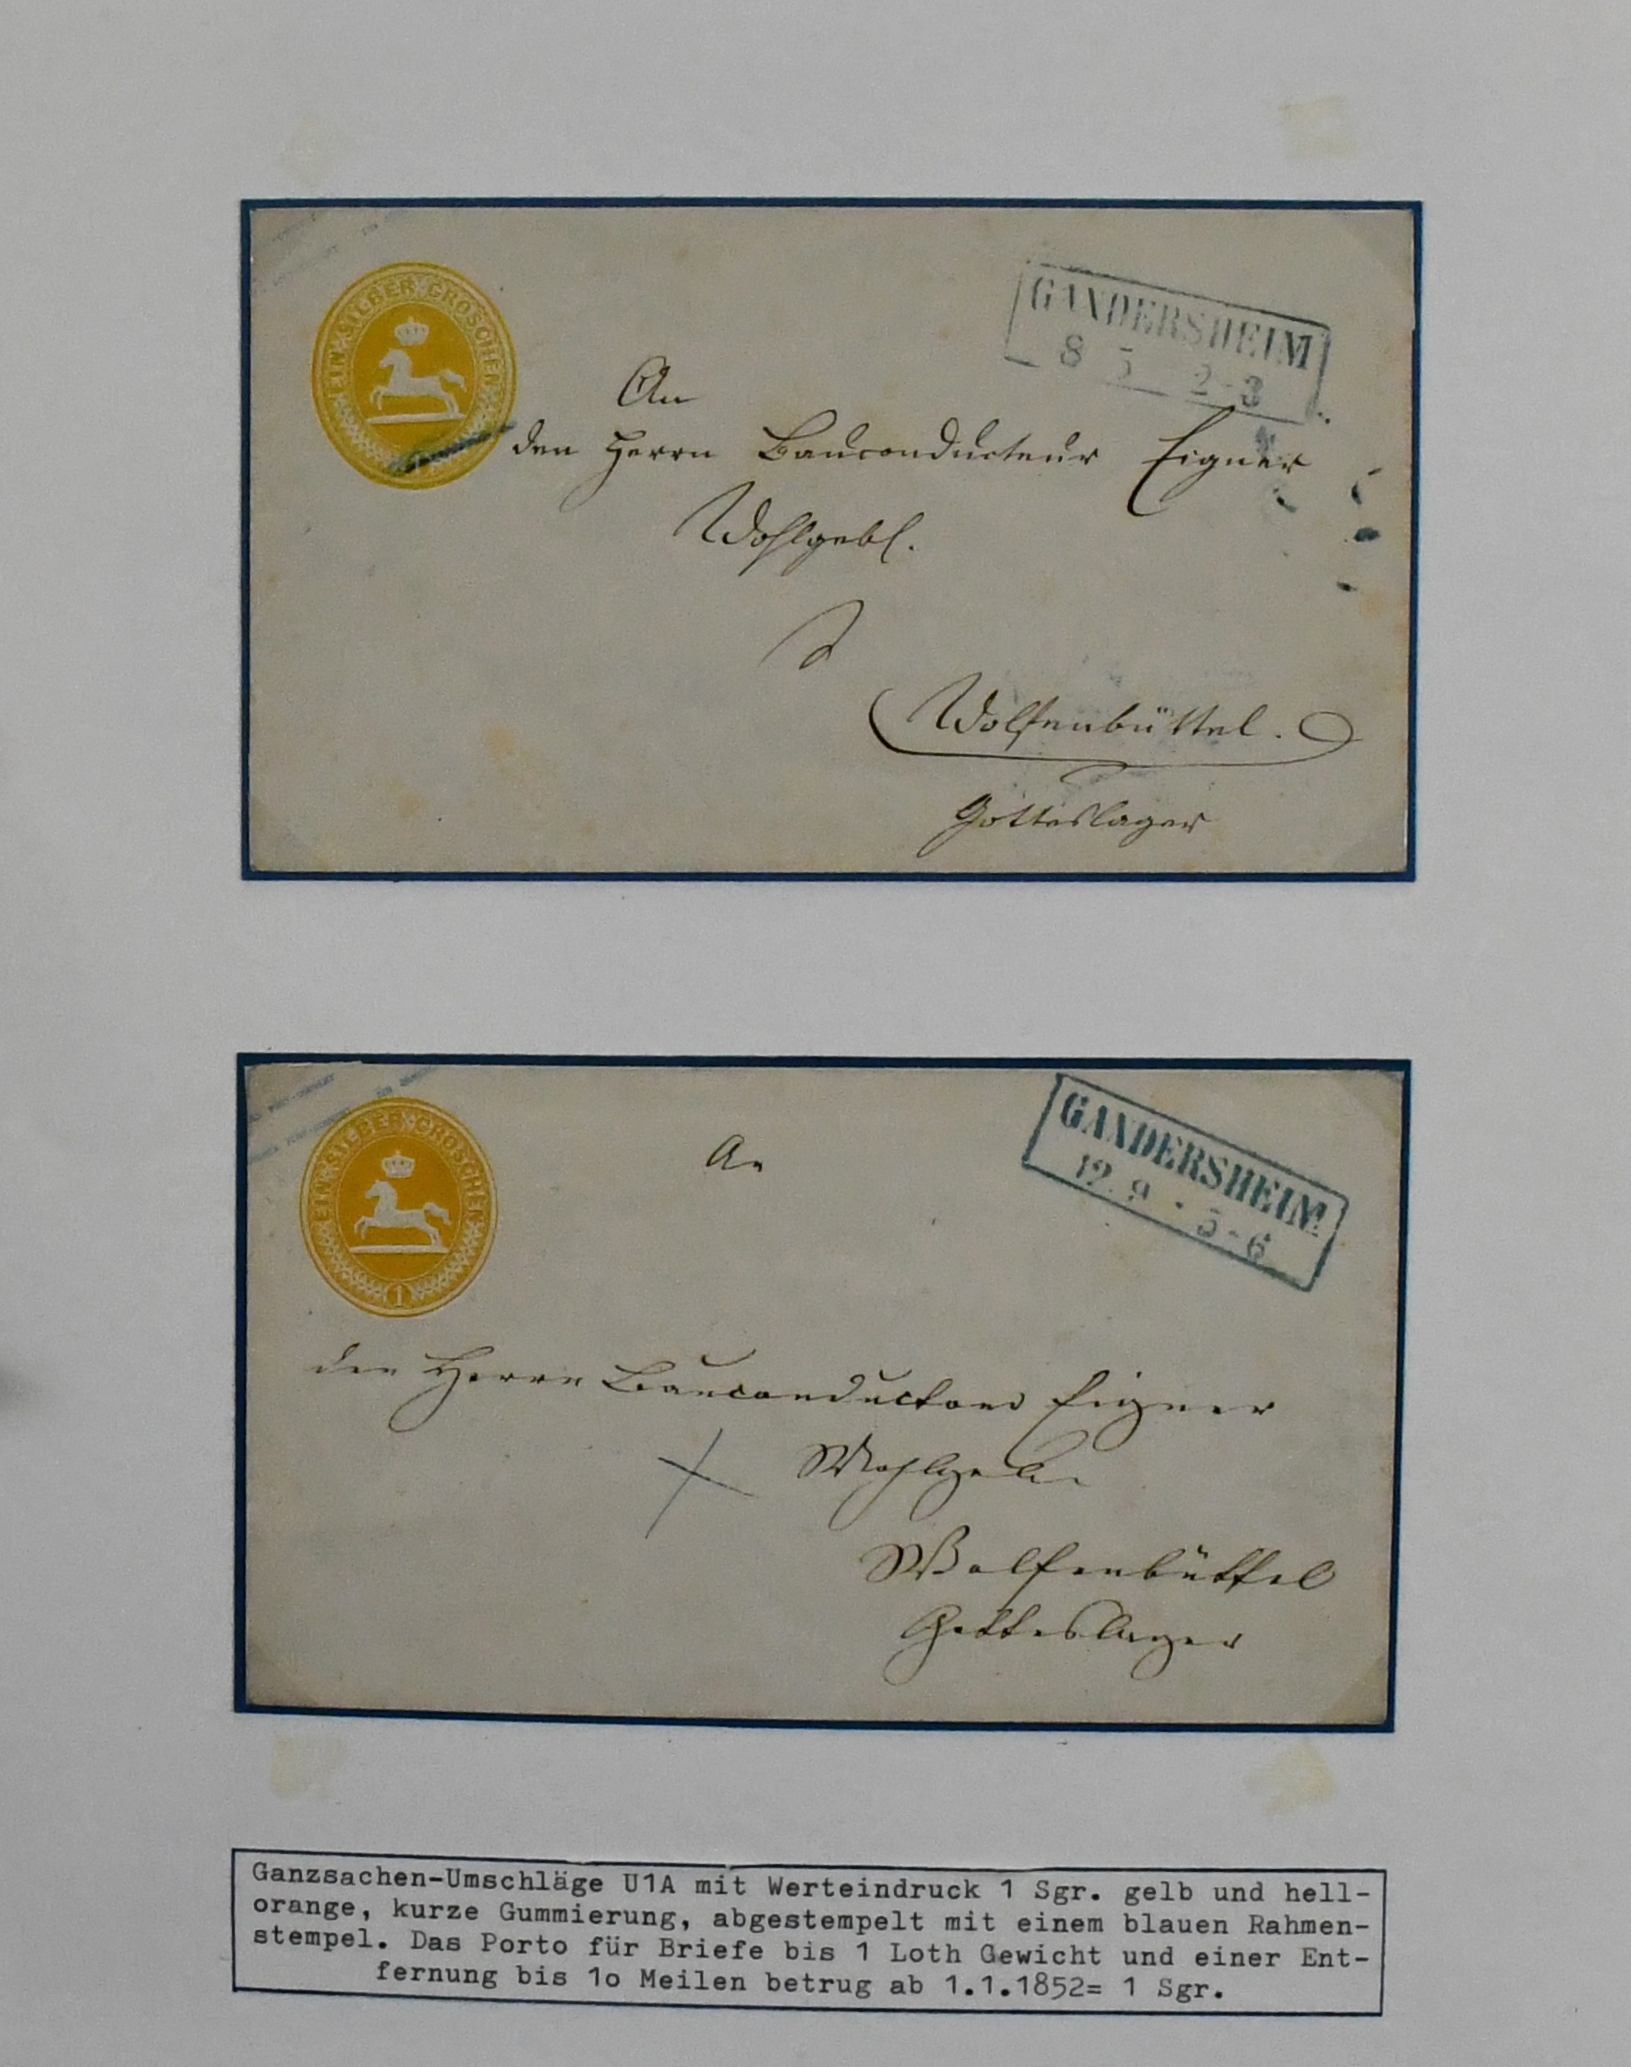 EIN SILBER GROSCHEN
GANDERSHEIM
8 5 2-3
An
den Herrn Bauconducteur Eigner
Wohlgebl.
Wolfenbüttel.
Gotteslager
EIN SILBER GROSCHEN
1
GANDERSHEIM
12 9 · 5-6
An
den Herrn Bauconducteur Eigner
Wolfenbüttel
Gotteslager
Ganzsachen-Umschläge U1A mit Werteindruck 1 Sgr. gelb und hell-
orange, kurze Gummierung, abgestempelt mit einem blauen Rahmen-
stempel. Das Porto für Briefe bis 1 Loth Gewicht und einer Ent-
fernung bis 1o Meilen betrug ab 1.1.1852= 1 Sgr.